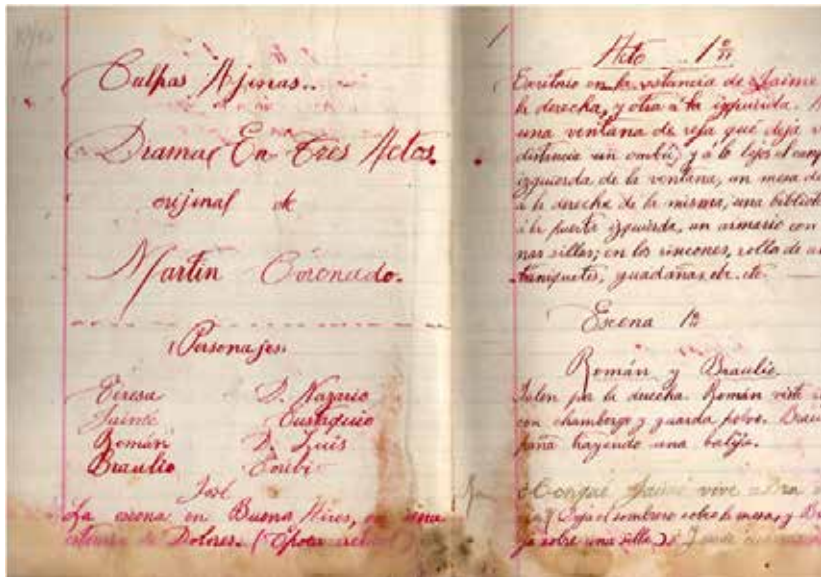 Culpas Ajenas..
Drama En Tres Actos.
orijinal de
Martín Coronado.
Personajes.
Teresa D. Nazario
Jaime Eustaquio
Román D. Luis
Braulio
José
La escena en Buenos Aires, en una
estancia de Dolores. (Época
1
Acto 1º
Escritorio en la estancia de Jaime
la derecha, y otra á la izquierda.
una ventana de reja que deja
distancia un ombú, y á lo lejos el
izquierda de la ventana, un mesa de
á la derecha de la misma, una
á la puerta izquierda, un armario con
sillas; en los rincones, rollo de
banquetes, guadañas, etc. etc.
Escena 1ª
Román y Braulio.
Salen por la derecha. Román viste
con chambergo y guarda polvo.
trayendo una balija.
¿Conqué Jaime vive
sombrero sobre la mesa, y
sobre una silla)